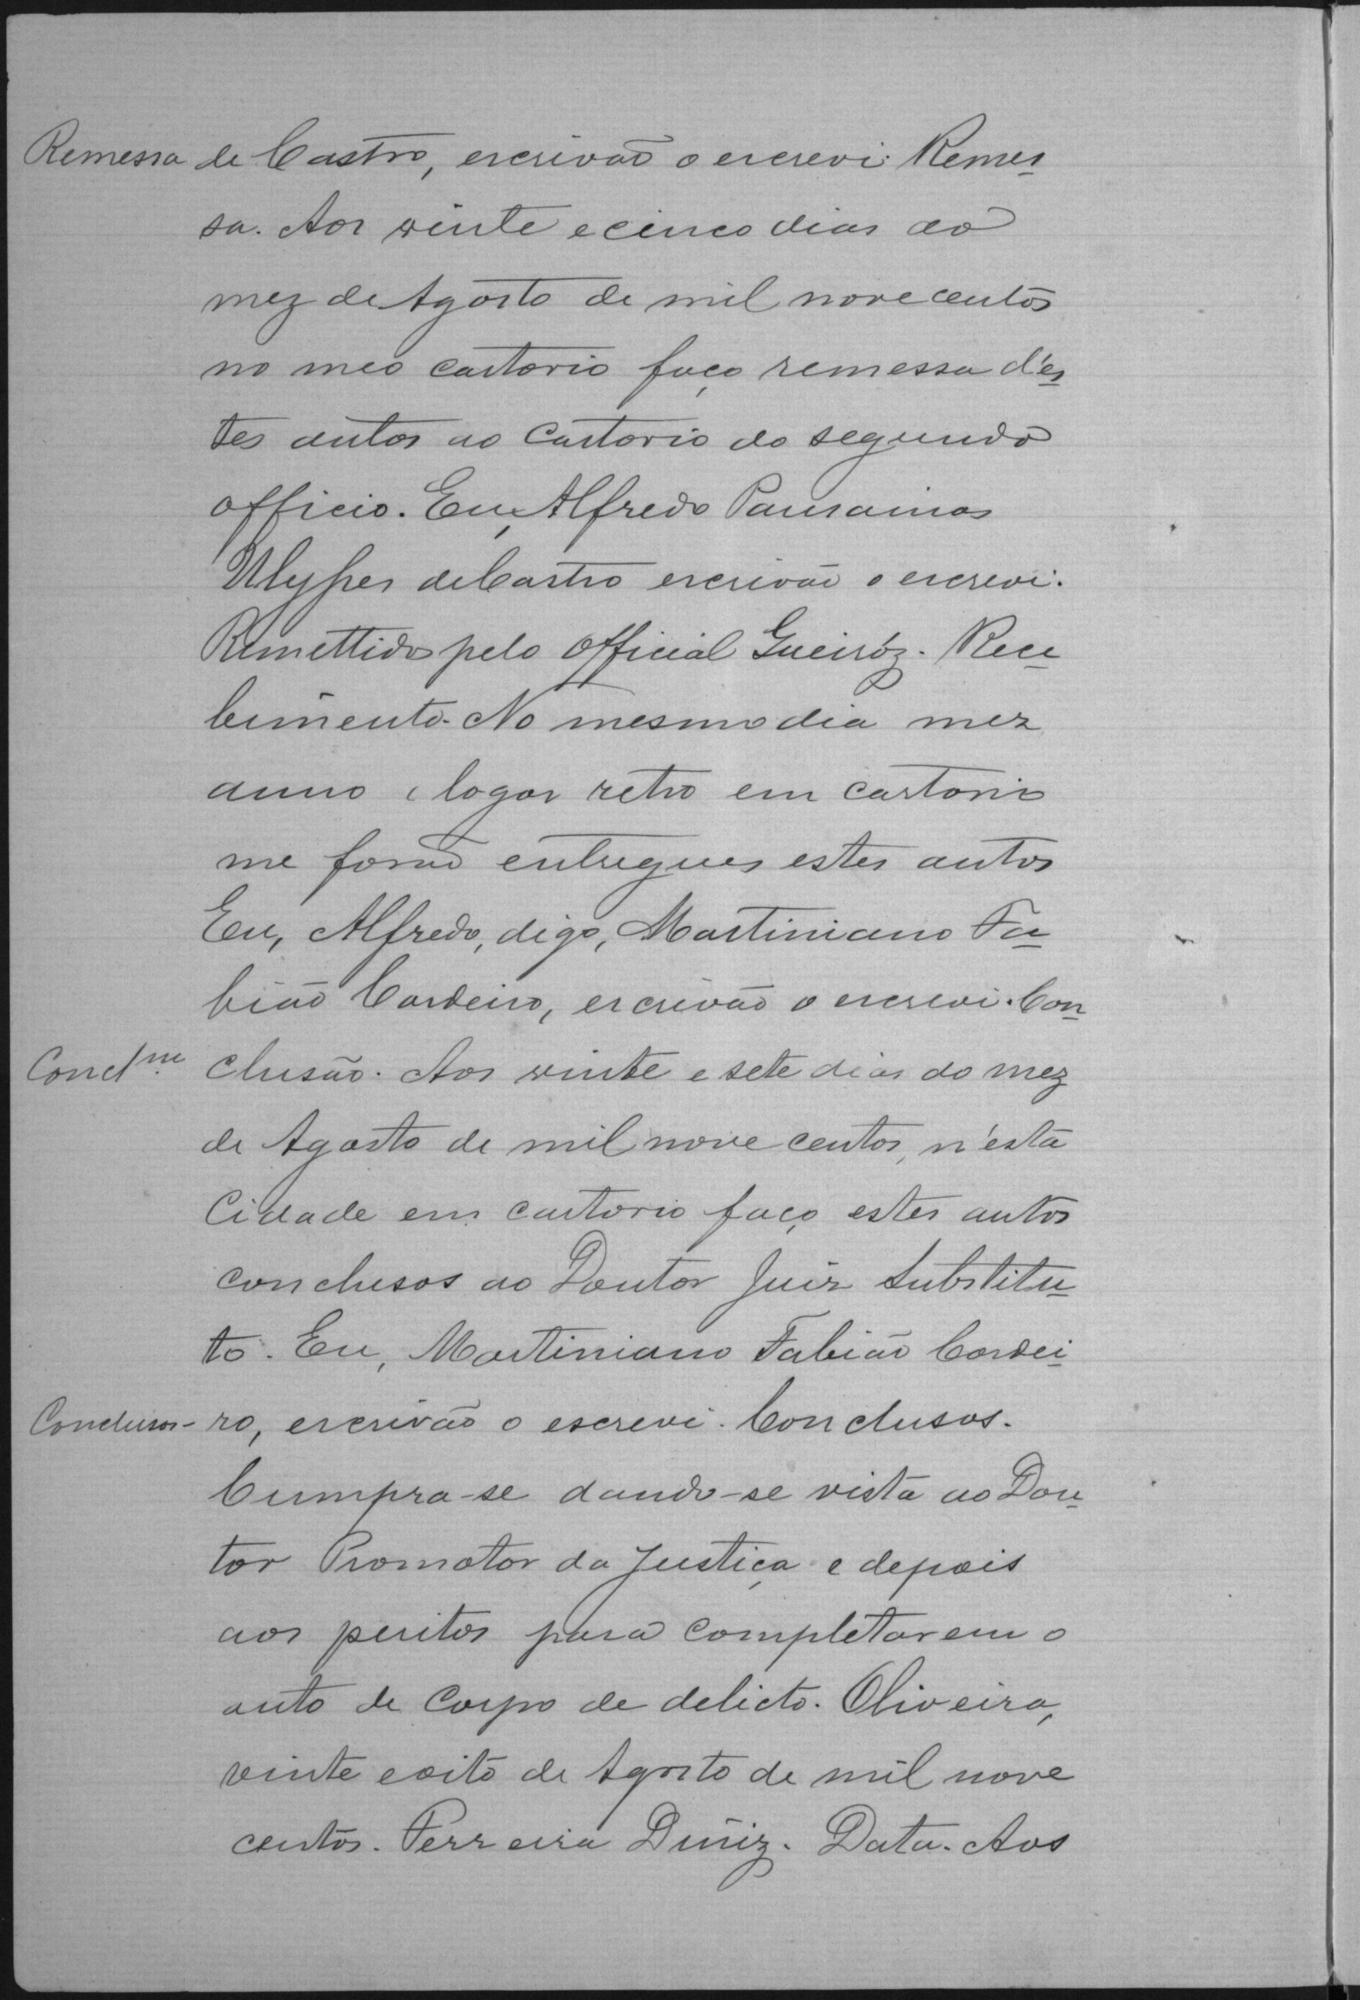 Remessa de Castro, escrivão o escrevi. Remes-
sa. Aos vinte e cinco dias do
mez de Agosto de mil nove centos
no meo cartorio faço remessa d'es-
tes autos ao Cartorio do segundo
officio. Eu, Alfredo Pausanias
Ulysses de Castro escrivão o escrevi.
Remettidos pelo official Gueiróz. Rece-
bimento. No mesmo dia mez
anno e logar retro em cartorio
me forão entregues estes autos
Eu, Alfredo, digo, Martiniano Fa-
bião Cordeiro, escrivão o escrevi. Con-
Concl.m clusão. Aos vinte e sete dias do mez
de Agosto de mil nove centos, n'esta
Cidade em cartorio faço estes autos
conclusos ao Doutor Juiz Substitu-
to. Eu, Martiniano Fabião Cordei-
Conclusos - ro, escrivão o escrevi. Conclusos.
Cumpra-se dando-se vista ao Dou-
tor Promotor da Justiça e depois
aos peritos para completarem o
auto de Corpo de delicto. Oliveira,
vinte e oito de Agosto de mil nove
centos. Ferreira Diniz. Data. Aos